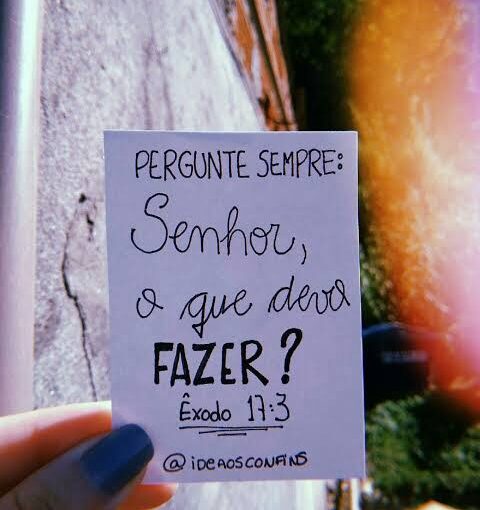 PERGUNTE SEMPRE:
Senhor,
o que devo
FAZER?
Êxodo 17:3
@ideaosconfins